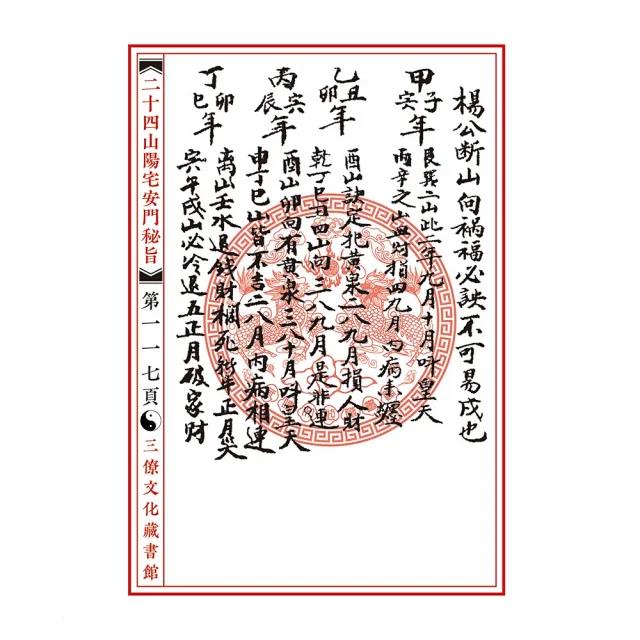 楊公断山向禍福必訣不可易戌也
甲子
年
艮巽二山此二年九月十月叫皇天
丙辛之山血財指四九月內病未纏
乙丑
卯
年
酉山訣定犯黃泉二八九月損人財
乾丁巳丑四山向三八九月是非連
丙
辰
年
酉山卯向有黃泉三八十月叫皇天
申丁巳山皆不吉二八月內病相連
丁卯
巳
年
离山壬水退錢財橺死牛正月哭
午戌山必冷退五正月破家財
《二十四山陽宅安門秘旨》第一一七頁
三僚文化藏書館